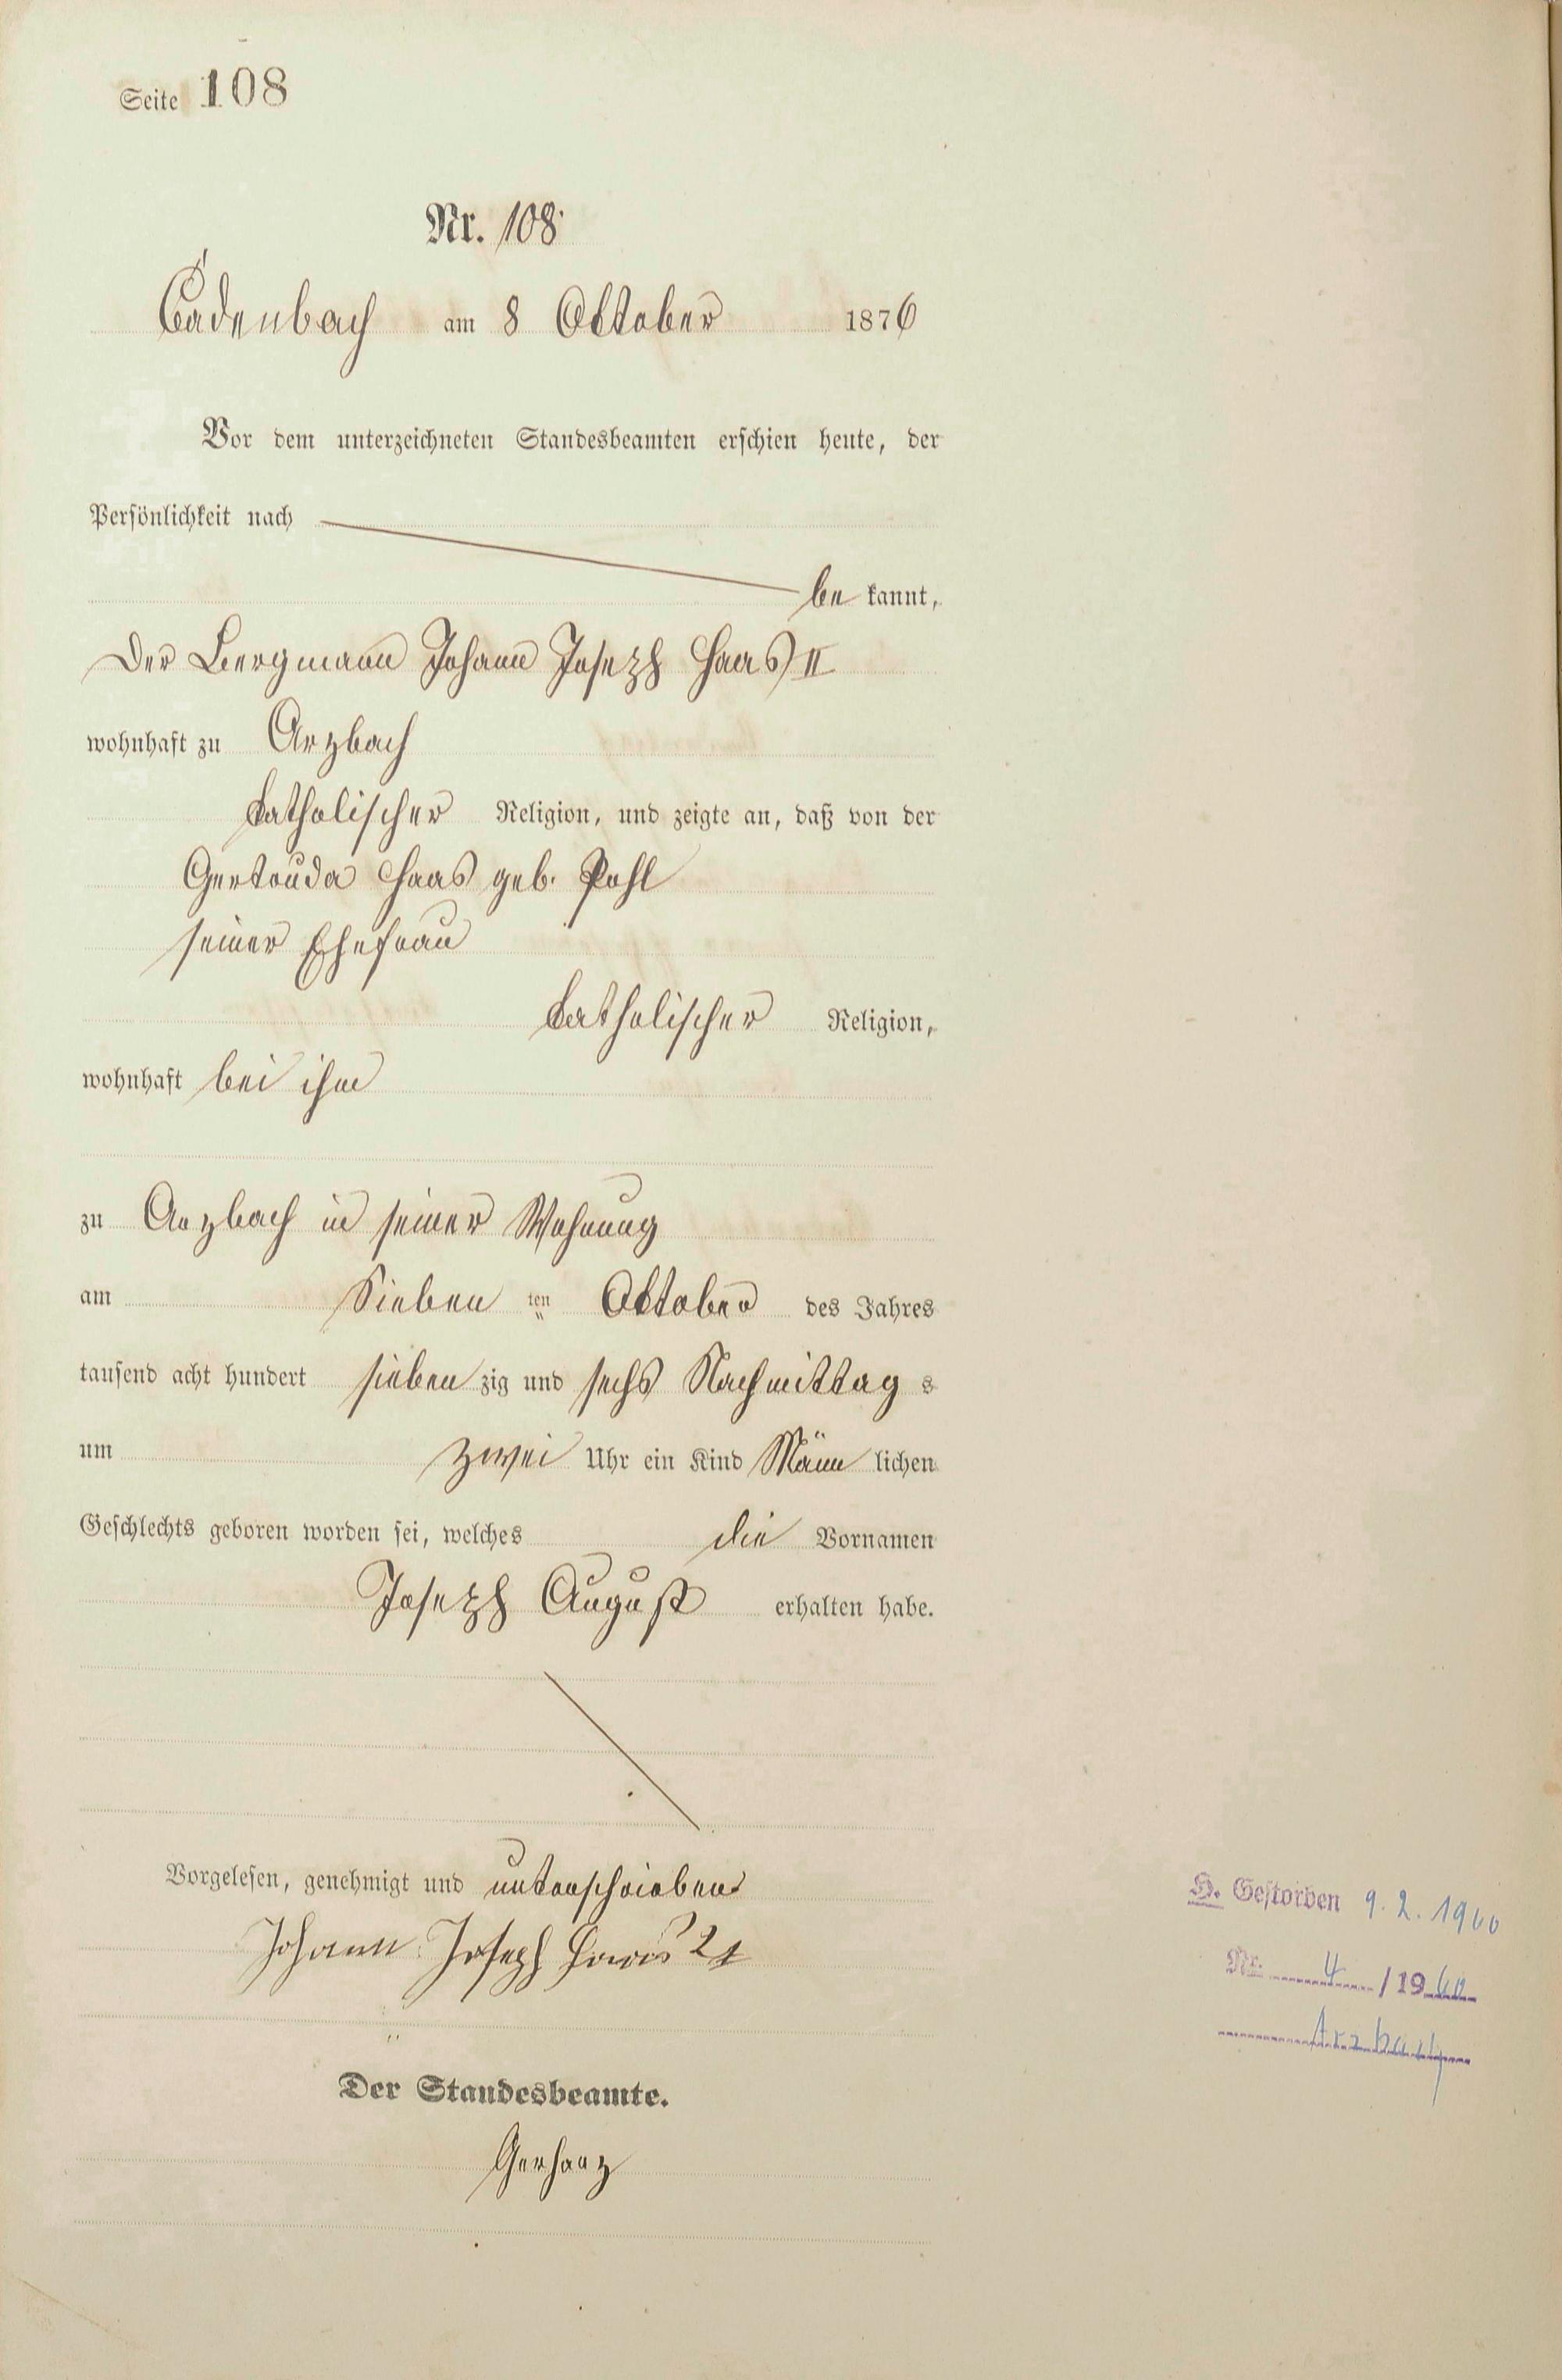 Seite 108
Nr. 108
Cadenbach am 8 Oktober 1876
Vor dem unterzeichneten Standesbeamten erschien heute, der
Persönlichkeit nach
be kannt,
Der Bergmann Johann Joseph Haas II
wohnhaft zu Arzbach
katholischer Religion, und zeigte an, daß von der
Gertruda Haas geb. Pohl
seiner Ehefrau
katholischer Religion,
wohnhaft bei ihm
zu Arzbach in seiner Wohnung
am Sieben ten Oktober des Jahres
tausend acht hundert sieben zig und sechs Nachmittag s
um zwei Uhr ein Kind Männ lichen
Geschlechts geboren worden sei, welches die Vornamen
Joseph August erhalten habe.
Vorgelesen, genehmigt und unterschrieben
Johann Joseph Haas 2t
Der Standesbeamte.
Gerharz
H. Gestorben 9. 2. 1960
Nr. 4 / 1960
Arzbach